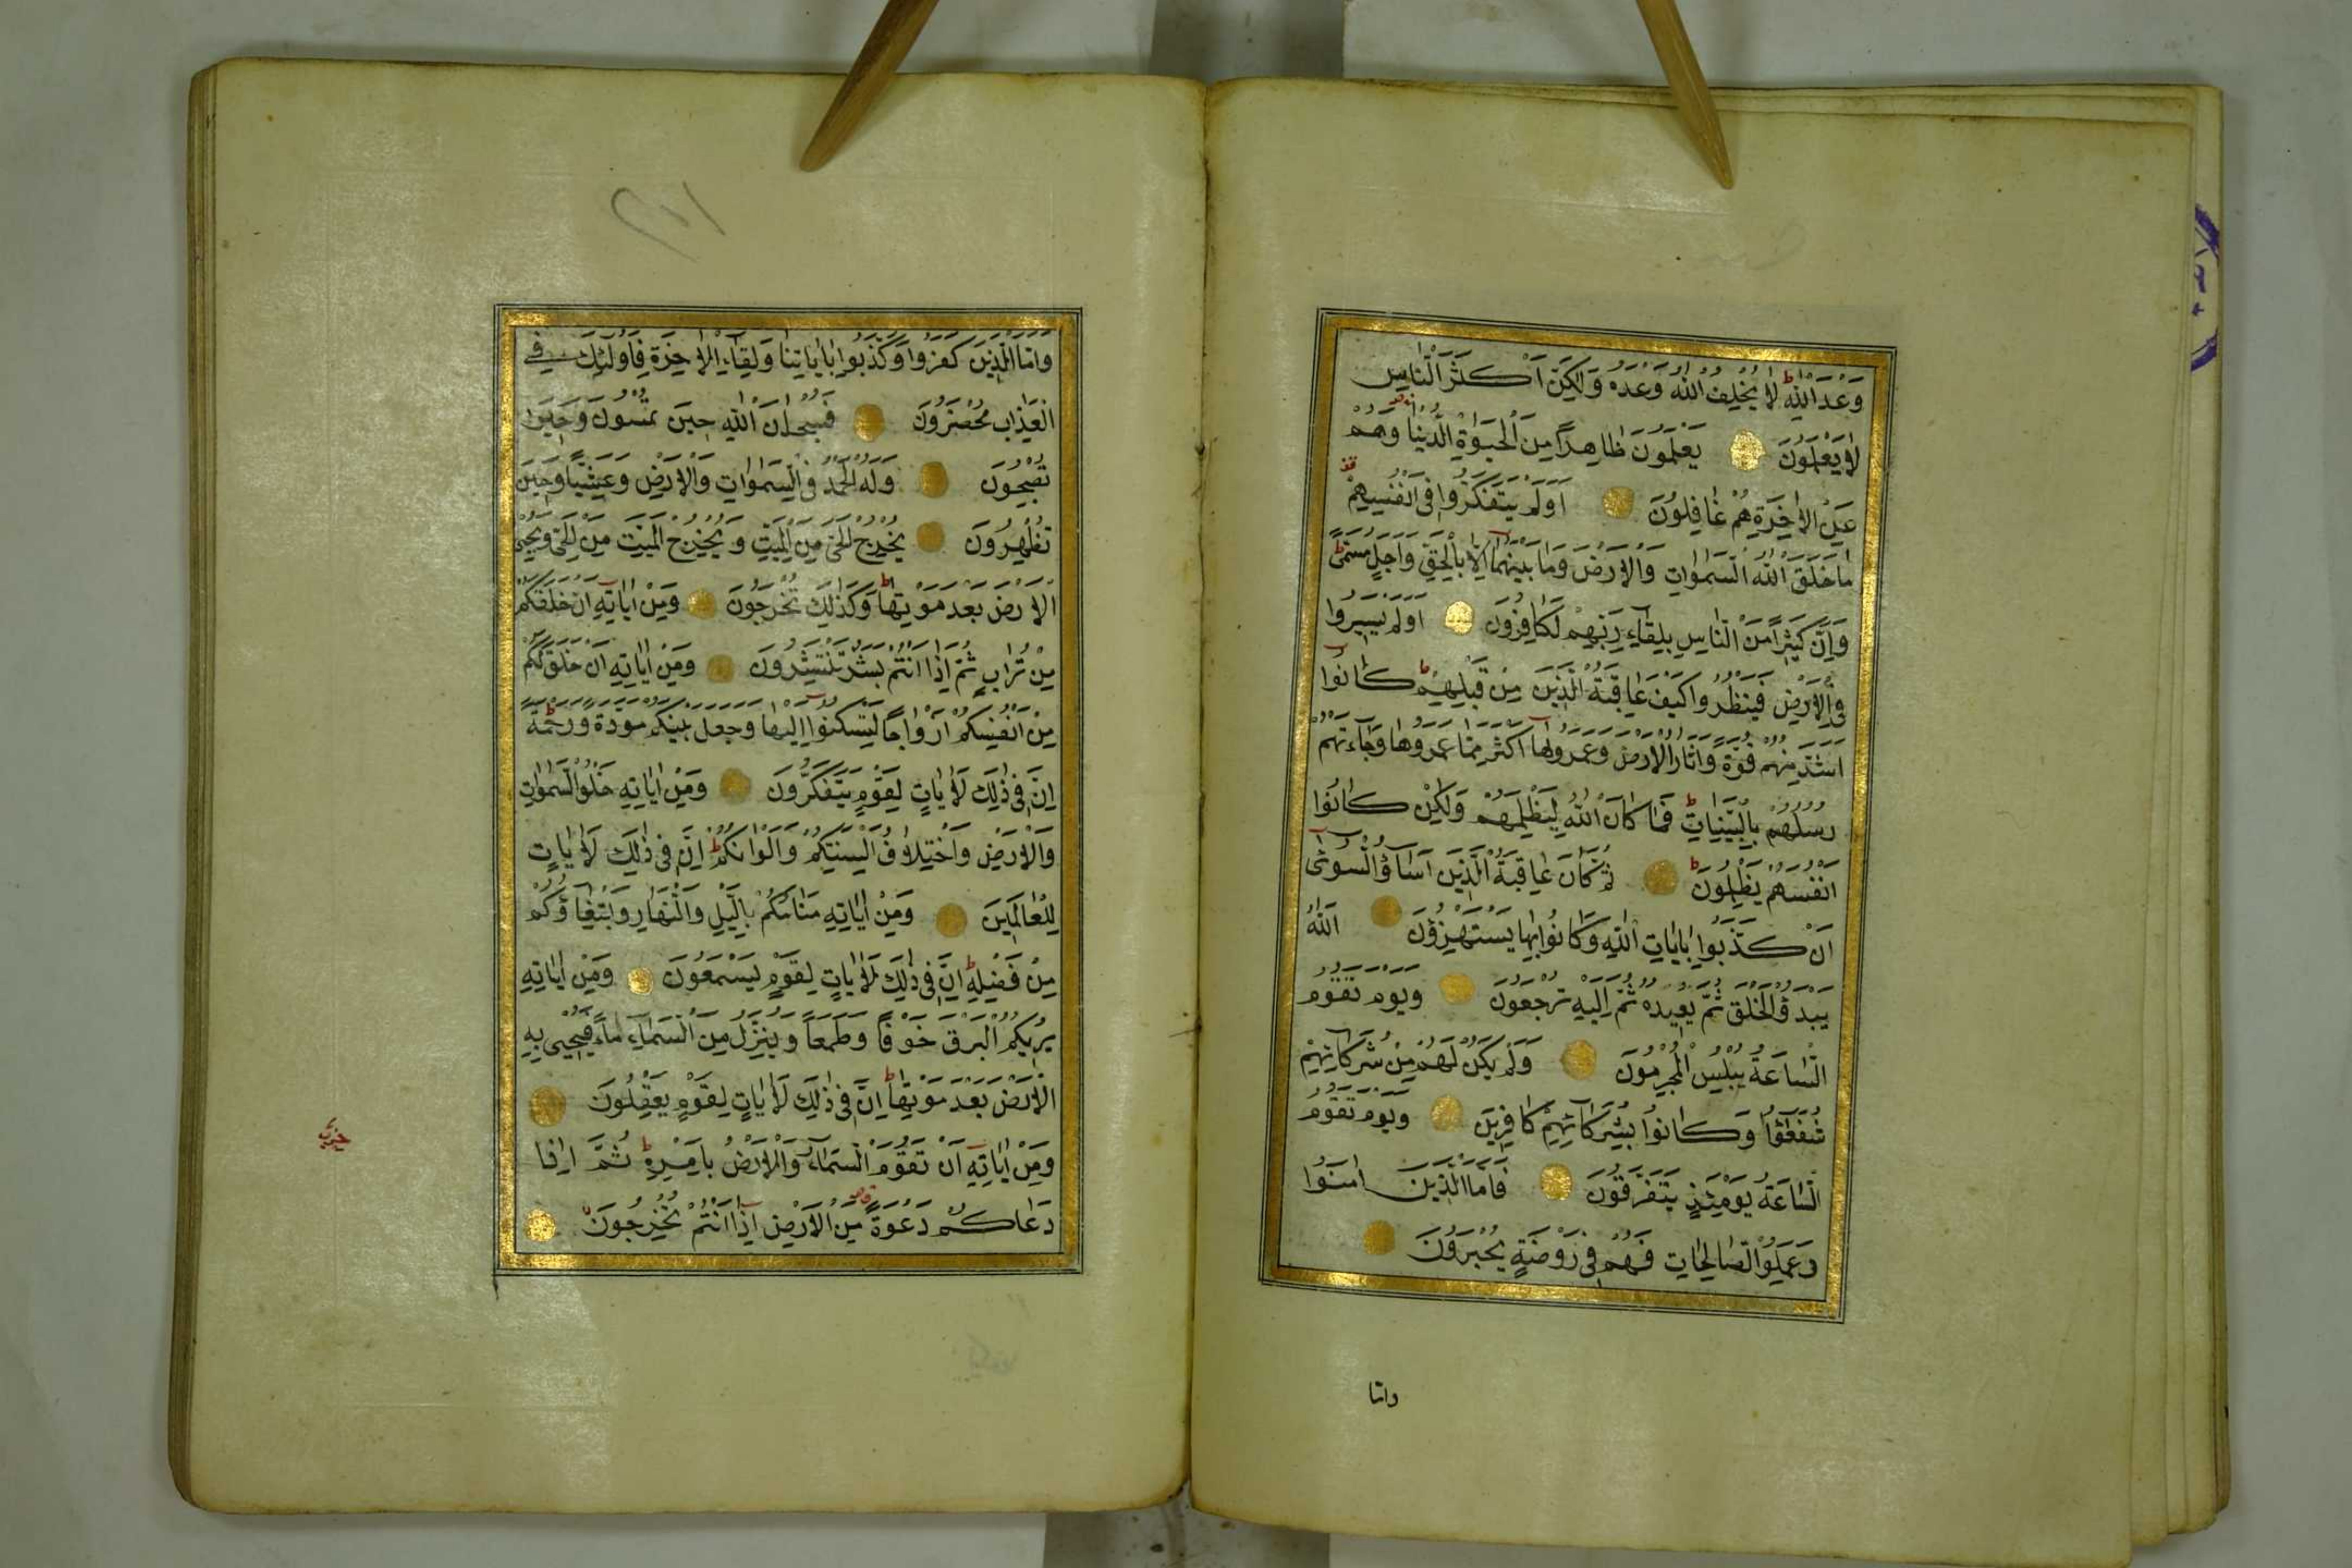 وَعْدَ اللّٰهِ لَا يُخْلِفُ اللّٰهُ وَعْدَهُ وَلٰكِنَّ اَكْثَرَ النَّاسِ
لَا يَعْلَمُونَ يَعْلَمُونَ ظَاهِرًا مِنَ الْحَيٰوةِ الدُّنْيَا وَهُمْ
عَنِ الْاٰخِرَةِ هُمْ غَافِلُونَ اَوَلَمْ يَتَفَكَّرُوا فِى اَنْفُسِهِمْ
مَا خَلَقَ اللّٰهُ السَّمٰوَاتِ وَالْاَرْضَ وَمَا بَيْنَهُمَا اِلَّا بِالْحَقِّ وَاَجَلٍ مُسَمًّى
وَاِنَّ كَثِيرًا مِنَ النَّاسِ بِلِقَاءِ رَبِّهِمْ لَكَافِرُونَ اَوَلَمْ يَسِيرُوا
فِى الْاَرْضِ فَيَنْظُرُوا كَيْفَ كَانَ عَاقِبَةُ الَّذِينَ مِنْ قَبْلِهِمْ كَانُوا
اَشَدَّ مِنْهُمْ قُوَّةً وَاَثَارُوا الْاَرْضَ وَعَمَرُوهَا اَكْثَرَ مِمَّا عَمَرُوهَا وَجَاءَتْهُمْ
رُسُلُهُمْ بِالْبَيِّنَاتِ فَمَا كَانَ اللّٰهُ لِيَظْلِمَهُمْ وَلٰكِنْ كَانُوا
اَنْفُسَهُمْ يَظْلِمُونَ ثُمَّ كَانَ عَاقِبَةَ الَّذِينَ اَسَاؤُا السُّوآٰى
اَنْ كَذَّبُوا بِاٰيَاتِ اللّٰهِ وَكَانُوا بِهَا يَسْتَهْزِؤُنَ اَللّٰهُ
يَبْدَؤُا الْخَلْقَ ثُمَّ يُعِيدُهُ ثُمَّ اِلَيْهِ تُرْجَعُونَ وَيَوْمَ تَقُومُ
السَّاعَةُ يُبْلِسُ الْمُجْرِمُونَ وَلَمْ يَكُنْ لَهُمْ مِنْ شُرَكَائِهِمْ
شُفَعٰٓؤُا وَكَانُوا بِشُرَكَائِهِمْ كَافِرِينَ وَيَوْمَ تَقُومُ
السَّاعَةُ يَوْمَئِذٍ يَتَفَرَّقُونَ فَاَمَّا الَّذِينَ اٰمَنُوا
وَعَمِلُوا الصَّالِحَاتِ فَهُمْ فِى رَوْضَةٍ يُحْبَرُونَ
واما
وَاَمَّا الَّذِينَ كَفَرُوا وَكَذَّبُوا بِاٰيَاتِنَا وَلِقَاءِ الْاٰخِرَةِ فَاُولٰئِكَ فِى
الْعَذَابِ مُحْضَرُونَ فَسُبْحَانَ اللّٰهِ حِينَ تُمْسُونَ وَحِينَ
تُصْبِحُونَ وَلَهُ الْحَمْدُ فِى السَّمٰوَاتِ وَالْاَرْضِ وَعَشِيًّا وَحِينَ
تُظْهِرُونَ يُخْرِجُ الْحَىَّ مِنَ الْمَيِّتِ وَيُخْرِجُ الْمَيِّتَ مِنَ الْحَىِّ وَيُحْيِى
الْاَرْضَ بَعْدَ مَوْتِهَا وَكَذٰلِكَ تُخْرَجُونَ وَمِنْ اٰيَاتِهِ اَنْ خَلَقَكُمْ
مِنْ تُرَابٍ ثُمَّ اِذَا اَنْتُمْ بَشَرٌ تَنْتَشِرُونَ وَمِنْ اٰيَاتِهِ اَنْ خَلَقَ لَكُمْ
مِنْ اَنْفُسِكُمْ اَزْوَاجًا لِتَسْكُنُوا اِلَيْهَا وَجَعَلَ بَيْنَكُمْ مَوَدَّةً وَرَحْمَةً
اِنَّ فِى ذٰلِكَ لَاٰيَاتٍ لِقَوْمٍ يَتَفَكَّرُونَ وَمِنْ اٰيَاتِهِ خَلْقُ السَّمٰوَاتِ
وَالْاَرْضِ وَاخْتِلَافُ اَلْسِنَتِكُمْ وَاَلْوَانِكُمْ اِنَّ فِى ذٰلِكَ لَاٰيَاتٍ
لِلْعَالِمِينَ وَمِنْ اٰيَاتِهِ مَنَامُكُمْ بِالَّيْلِ وَالنَّهَارِ وَابْتِغَاؤُكُمْ
مِنْ فَضْلِهِ اِنَّ فِى ذٰلِكَ لَاٰيَاتٍ لِقَوْمٍ يَسْمَعُونَ وَمِنْ اٰيَاتِهِ
يُرِيكُمُ الْبَرْقَ خَوْفًا وَطَمَعًا وَيُنَزِّلُ مِنَ السَّمَاءِ مَاءً فَيُحْيِى بِهِ
الْاَرْضَ بَعْدَ مَوْتِهَا اِنَّ فِى ذٰلِكَ لَاٰيَاتٍ لِقَوْمٍ يَعْقِلُونَ
وَمِنْ اٰيَاتِهِ اَنْ تَقُومَ السَّمَاءُ وَالْاَرْضُ بِاَمْرِهِ ثُمَّ اِذَا
دَعَاكُمْ دَعْوَةً مِنَ الْاَرْضِ اِذَا اَنْتُمْ تَخْرُجُونَ
حزب